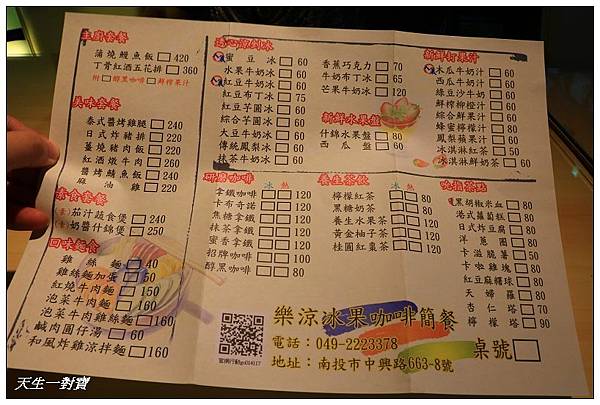 主廚套餐
蒲燒鰻魚飯 420
丁骨紅酒五花排 360
附:醇黑咖啡 鮮榨果汁
美味套餐
泰式醬烤雞腿 240
日式炸豬排 220
薑燒豬肉飯 220
紅酒燉牛肉 260
醬烤鯖魚飯 220
麻油雞 220
素食套餐
(素)茄汁蔬食煲 240
(素)奶醬什錦煲 250
回味麵食
雞絲麵 40
雞絲麵加蛋 50
紅燒牛肉麵 150
泡菜牛肉麵 160
泡菜牛肉雞絲麵 160
鹹肉圓仔湯 60
和風炸雞涼拌麵 160
透心涼刨冰
蜜豆冰 60
水果牛奶冰 60
紅豆牛奶冰 60
紅豆布丁冰 75
紅豆芋圓冰 60
綜合芋圓冰 60
大豆牛奶冰 60
傳統鳳梨冰 60
抹茶牛奶冰 60
香蕉巧克力 70
牛奶布丁冰 65
芒果牛奶冰 120
新鮮水果盤
什錦水果盤 80
西瓜盤 60
新鮮打果汁
木瓜牛奶汁 60
西瓜牛奶汁 60
綠豆沙牛奶 60
鮮榨柳橙汁 60
綜合鮮果汁 60
蜂蜜檸檬汁 80
鳳梨蘋果汁 60
冰淇淋紅茶 50
冰淇淋鮮奶茶 60
研磨咖啡 冰 熱
拿鐵咖啡 120
卡布奇諾 120
焦糖拿鐵 120
抹茶拿鐵 130
蜜香拿鐵 130
招牌咖啡 100
醇黑咖啡 80
養生茶飲 冰 熱
檸檬紅茶 80
黑糖奶茶 80
養生水果茶 120
黃金柚子茶 120
桂圓紅棗茶 120
吮指茶點
黑胡椒米血 80
港式蘿蔔糕 80
日式炸豆腐 80
洋蔥圈 80
卡滋脆薯 50
卡啦雞塊 80
紅豆麻糬球 80
天婦羅 80
杏仁塔 80
檸檬塔 90
樂涼冰果咖啡簡餐
電話:049-2223378
地址:南投市中興路663-8號
桌號
天生一對寶